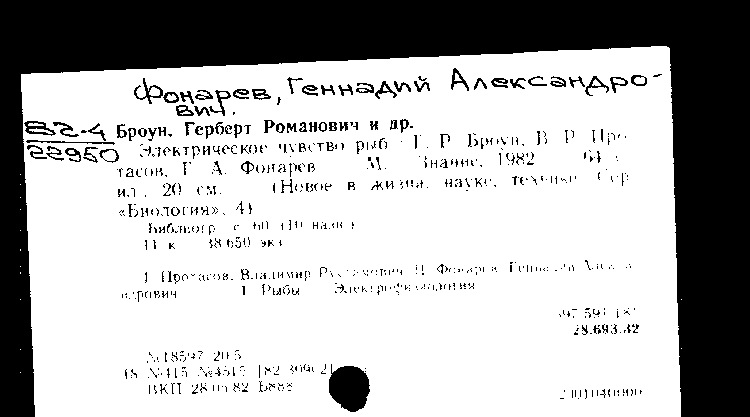 Фонарев, Геннадий Александро-
вич.
82-4
22950
Броун, Герберт Романович и др.
Электрическое чувство рыб / Г. Р. Броун, В. Р. Про-
тасов, Г. А. Фонарев М. Знание, 1982 64 с
ил., 20 см. (Новое в жизни, науке, технике. Сер
«Биология», 4)
Библиогр с 60 (10 назв)
11 к 38 650 экз
1 Протасов, Владимир II Фонарев, Геннадий Алекса
ндрович 1 Рыбы Электрофизиология
28.693.32
№18597 20 5
18 №415 №4515 [82
ВКП 28 82 Б888